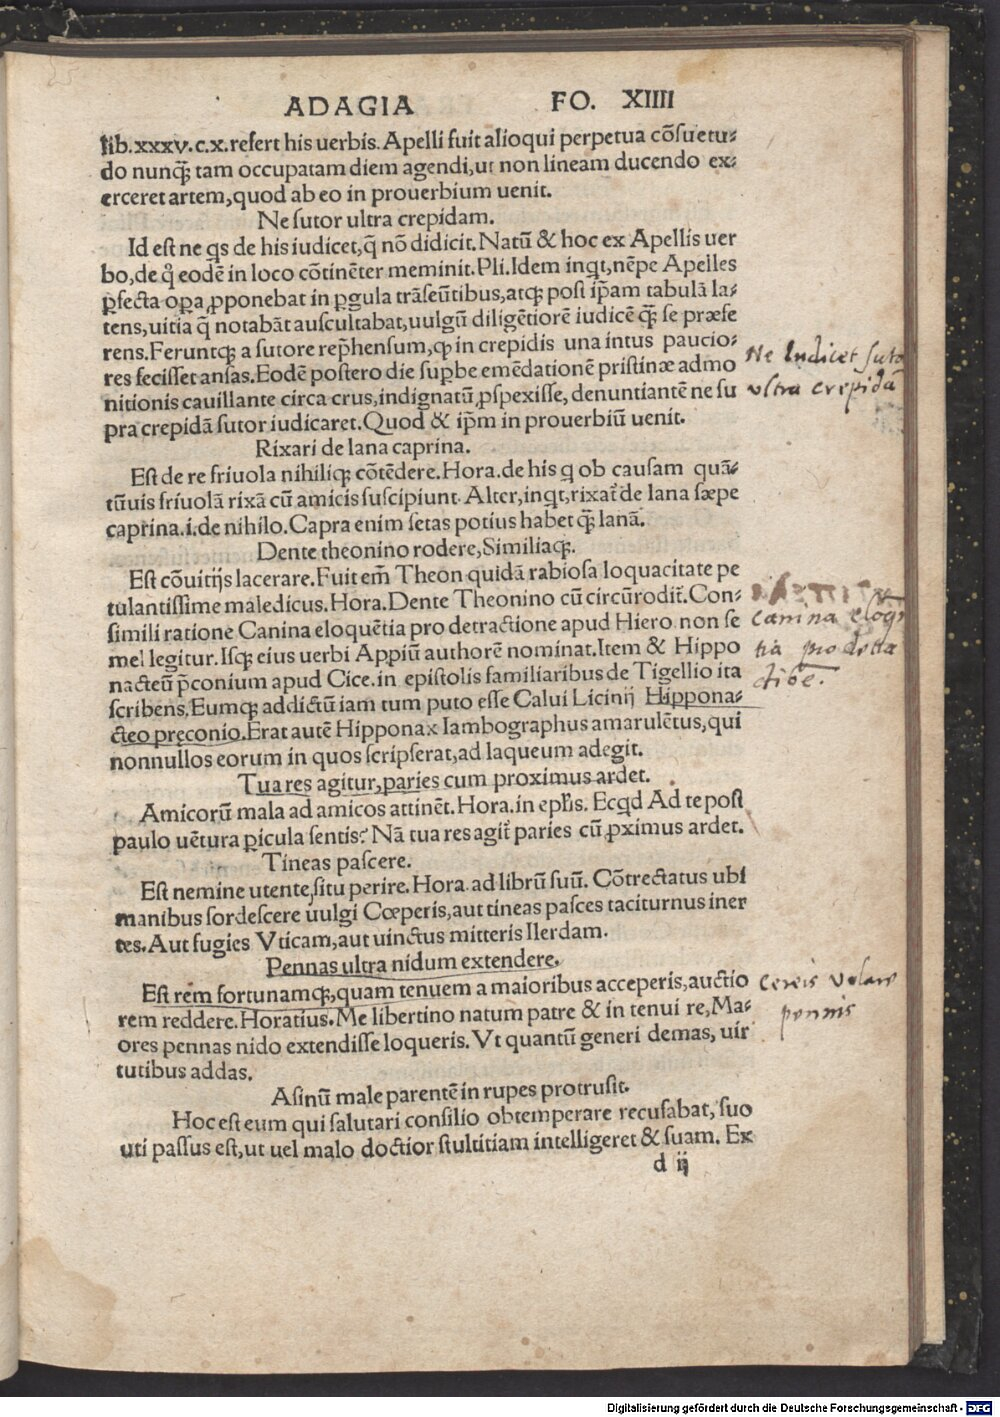 25
ADAGIA FO. XIIII
lib.xxxv.c.x.refert his uerbis. Apelli fuit alioqui perpetua cõsuetu⸗
do nunq̃ꝫ tam occupatam diem agendi,ut non lineam ducendo ex⸗
erceret artem,quod ab eo in prouerbium uenit.
Ne sutor ultra crepidam.
Id est ne qs de his iudicet,q̃ nõ didicit. Natũ & hoc ex Apellis uer
bo,de q̊ eodẽ in loco cõtinẽter meminit. Pli. Idem inqt,nẽpe Apelles
ꝑfecta oꝑa ꝓponebat in ꝑgula trãseũtibus,atqꝫ post ip̃am tabulã la⸗
tens,uitia q̃ notabãt auscultabat,uulgũ diligẽtiorẽ iudicẽ q̃ꝫ se præfe
rens.Feruntqꝫ a sutore rep̃hensum,ꝙ in crepidis una intus paucio⸗
res fecisset ansas.Eodẽ postero die suꝑbe emẽdationẽ pristinæ admo
nitionis cauillante circa crus,indignatũ ꝓspexisse, denuntiantẽ ne su
pra crepidã sutor iudicaret.Quod & ip̃m in prouerbiũ uenit.
Ne Iudicet suto
ultra crepidã
Rixari de lana caprina.
Est de re friuola nihiliqꝫ cõtẽdere.Hora.de his q ob causam quã⸗
tũuis friuolã rixã cũ amicis suscipiunt. Alter,inqt,rixat᷑ de lana sæpe
caprina.i.de nihilo.Capra enim setas potius habet q̃ꝫ lanã.
Dente theonino rodere,Similiaqꝫ.
Est cõuitijs lacerare.Fuit em̃ Theon quidã rabiosa loquacitate pe
tulantissime maledicus. Hora.Dente Theonino cũ circũrodit᷑. Con⸗
simili ratione Canina eloquẽtia pro detractione apud Hiero non se
mel legitur. Isqꝫ eius uerbi Appiũ authorẽ nominat.Item & Hippo
nacteũ p̃conium apud Cice.in epistolis familiaribus de Tigellio ita
scribens,Eumqꝫ addictũ iam tum puto esse Calui Licinij Hippona⸗
cteo pręconio.Erat autẽ Hipponax Iambographus amarulẽtus,qui
nonnullos eorum in quos scripserat,ad laqueum adegit.
canina eloqñ
tia pro detra
ctiõe.
Tua res agitur,paries cum proximus ardet.
Amicorũ mala ad amicos attinẽt. Hora. in ep̃lis. Ecqd Ad te post
paulo uẽtura ꝑicula sentis? Nã tua res agit᷑ paries cũ ꝓximus ardet.
Tineas pascere.
Est nemine utente,situ perire. Hora ad librũ suũ. Cõtrectatus ubi
manibus sordescere uulgi Cœperis,aut tineas pasces taciturnus iner
tes.Aut fugies Vticam,aut uinctus mitteris Ilerdam.
Pennas ultra nidum extendere.
Est rem fortunamqꝫ,quam tenuem a maioribus acceperis,auctio
rem reddere.Horatius.Me libertino natum patre & in tenui re,Ma⸗
ores pennas nido extendisse loqueris. Vt quantũ generi demas, uir
tutibus addas.
Cereis volare
pennis
Asinũ male parentẽ in rupes protrusit.
Hoc est eum qui salutari consilio obtemperare recusabat, suo
uti passus est,ut uel malo doctior stultitiam intelligeret & suam. Ex
d ij
Digitalisierung gefördert durch die Deutsche Forschungsgemeinschaft - DFG